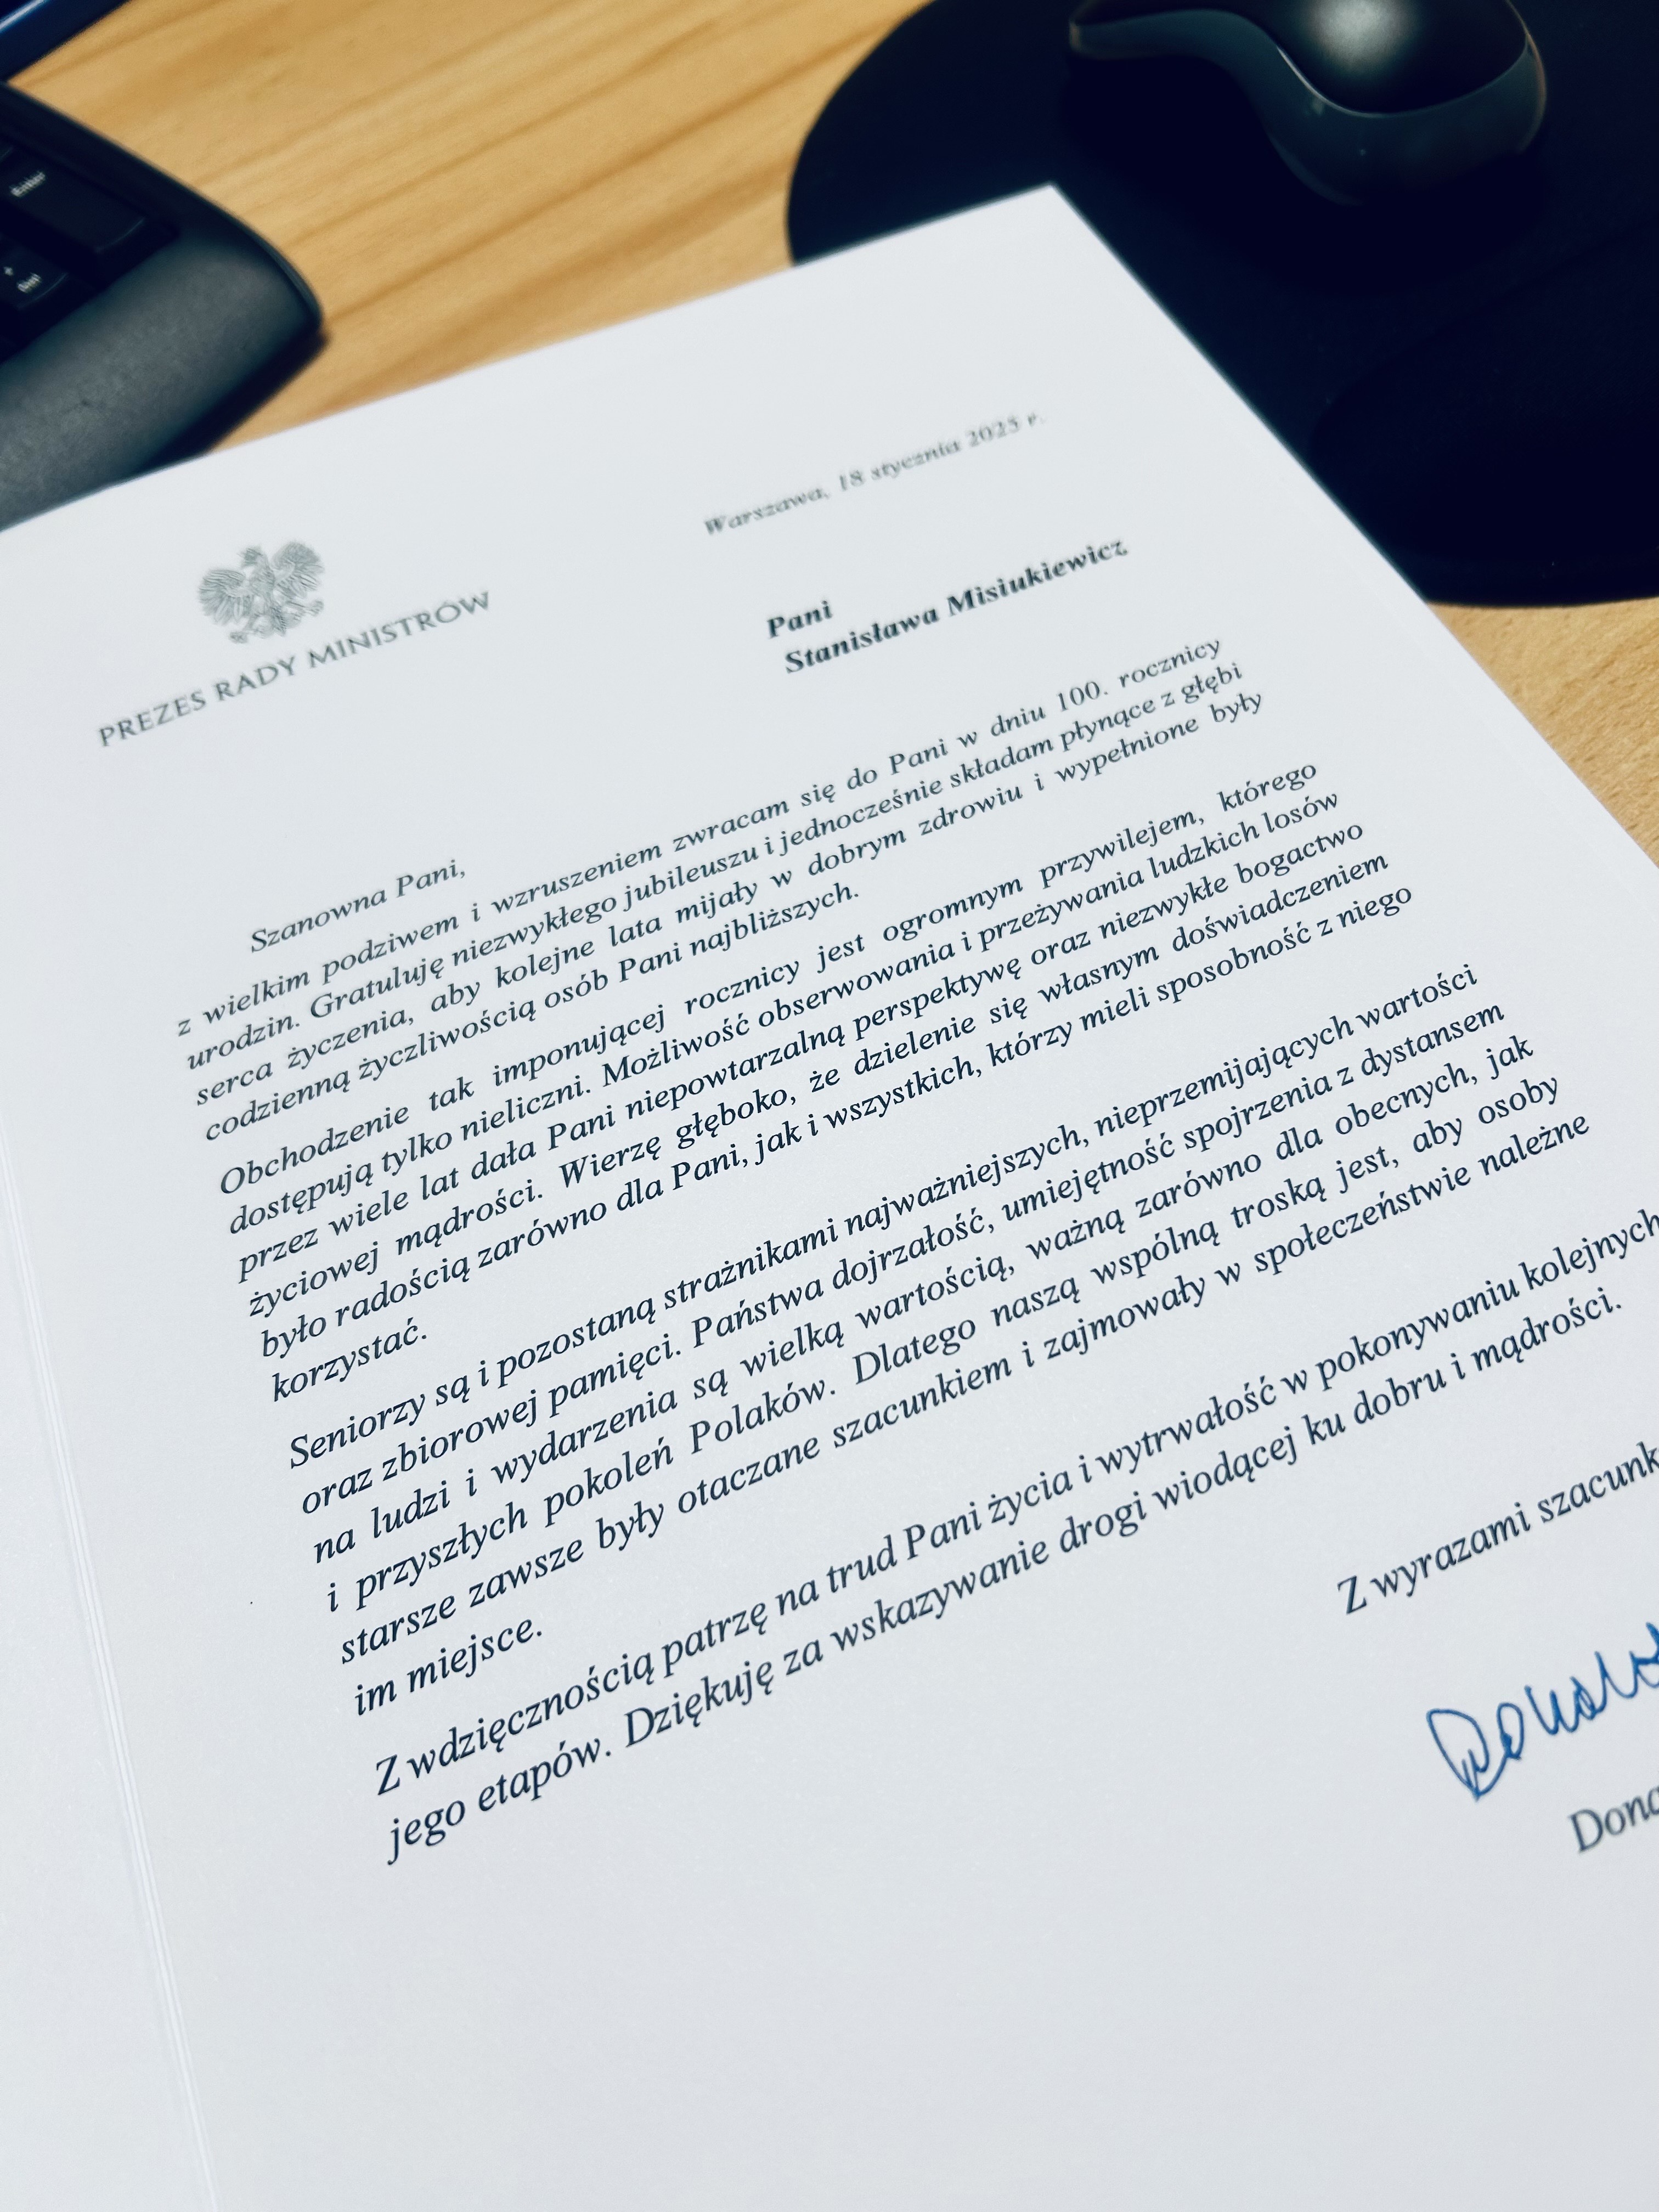 Enter
Del
Warszawa, 18 stycznia 2025 r.
PREZES RADY MINISTRÓW
Pani
Stanisława Misiukiewicz
Szanowna Pani,
z wielkim podziwem i wzruszeniem zwracam się do Pani w dniu 100. rocznicy
urodzin. Gratuluję niezwykłego jubileuszu i jednocześnie składam płynące z głębi
serca życzenia, aby kolejne lata mijały w dobrym zdrowiu i wypełnione były
codzienną życzliwością osób Pani najbliższych.
Obchodzenie tak imponującej rocznicy jest ogromnym przywilejem, którego
dostępują tylko nieliczni. Możliwość obserwowania i przeżywania ludzkich losów
przez wiele lat dała Pani niepowtarzalną perspektywę oraz niezwykłe bogactwo
życiowej mądrości. Wierzę głęboko, że dzielenie się własnym doświadczeniem
było radością zarówno dla Pani, jak i wszystkich, którzy mieli sposobność z niego
korzystać.
Seniorzy są i pozostaną strażnikami najważniejszych, nieprzemijających wartości
oraz zbiorowej pamięci. Państwa dojrzałość, umiejętność spojrzenia z dystansem
na ludzi i wydarzenia są wielką wartością, ważną zarówno dla obecnych, jak
i przyszłych pokoleń Polaków. Dlatego naszą wspólną troską jest, aby osoby
starsze zawsze były otaczane szacunkiem i zajmowały w społeczeństwie należne
im miejsce.
Z wdzięcznością patrzę na trud Pani życia i wytrwałość w pokonywaniu kolejnych
jego etapów. Dziękuję za wskazywanie drogi wiodącej ku dobru i mądrości.
Z wyrazami szacunk
Dona